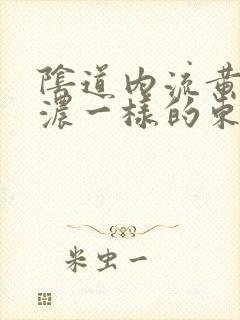 陰道內流黃
濃一樣的東
米虫一